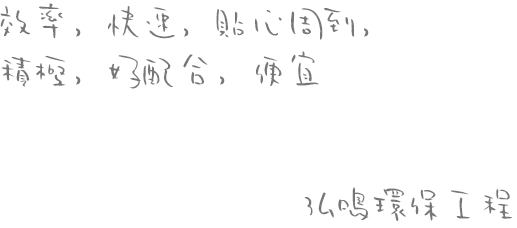 效率, 快速, 貼心周到,
積極, 好配合, 便宜
弘鳴環保工程